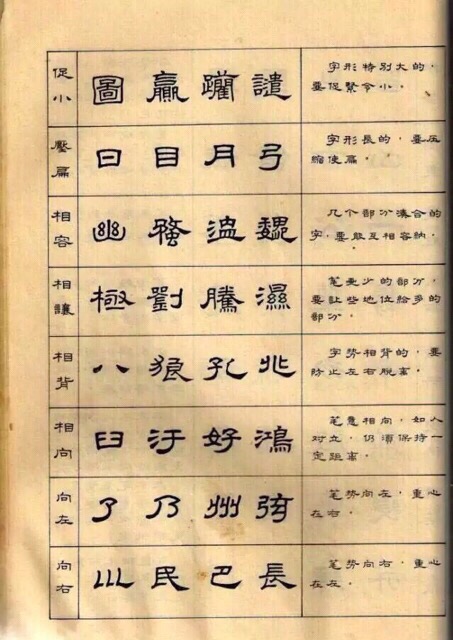 促小
圖 譴
字形特别大的，
要促緊令小。
壓扁
曰 目 月 弓
字形長的，要压
缩使扁。
相容
幽
几个部分湊合的
字，要能互相容納。
相讓
極 劉 騰 濕
笔画少的部分，
要让些地位給多的
部分。
相背
八 狼 孔 兆
字势相背的，要
防止左右脱离。
相向
臼 汙 好 鴻
笔意相向，如人
对立，仍須保持一
定距离。
向左
了 乃 州
笔势向左，重心
在右。
向右
川 民 巴 長
笔势向右，重心
在左。